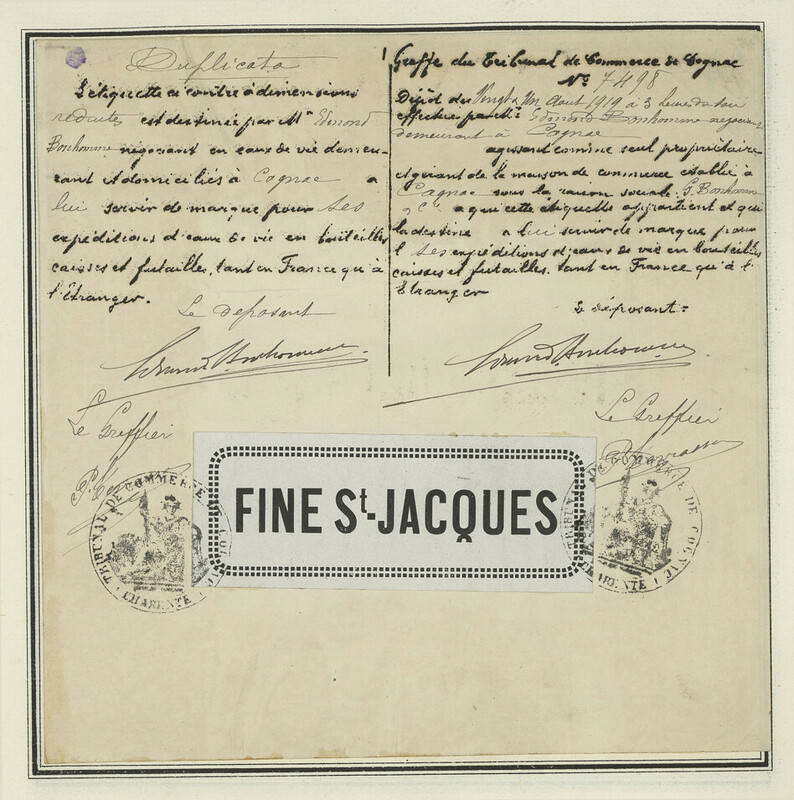 Duplicata
L'étiquette ci contre à dimensions
réduites est destinée par Mr Edmond
Bonhomme négociant en eaux de vie demeu-
rant et domiciliés à Cognac a
lui servir de marque pour ses
expéditions d'eaux de vie en bouteilles
caisses et futailles, tant en France qu'à
l'étranger.
Le déposant
Le Greffier
Greffe du Tribunal de Commerce de Cognac
No 7498
Dépôt du Vingt & Un Aout 1919 à 3 heures du soir
effectué par Mr Edmond Bonhomme négociant
demeurant à Cognac
agissant comme seul propriétaire
et gérant de la maison de commerce établie à
Cognac sous la raison sociale G. Bonhomme
& Cie a qui cette étiquette appartient et qui
la destine a lui servir de marque pour
ses expéditions d'eaux de vie en bouteilles
caisses et futailles, tant en France qu'à l'
Etranger
Le déposant =
Le Greffier
FINE St-JACQUES
TRIBUNAL DE COMMERCE DE COGNAC
CHARENTE
TRIBUNAL DE COMMERCE DE COGNAC
CHARENTE